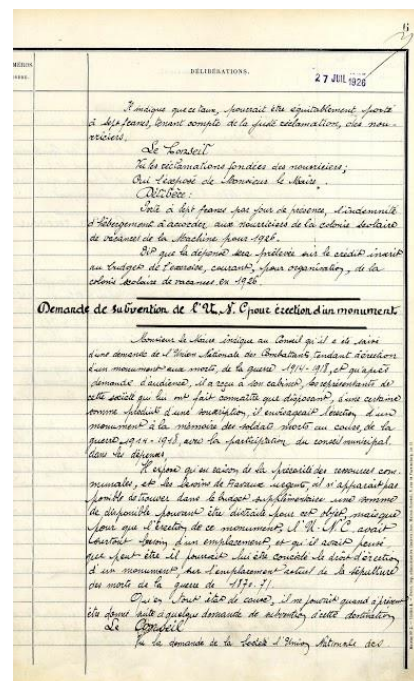 6
NUMÉROS
DÉLIBÉRATIONS.
27 JUIL 1926
Il indique que ce taux, pourrait être équitablement porté
à sept francs, tenant compte de la juste réclamation, des nour-
riciers.
Le Conseil
Vu les réclamations fondées des nourriciers;
Oui l'exposé de Monsieur le Maire.
Délibère:
Porte à sept francs par jour de présence, l'indemnité
d'hébergement à accorder aux nourriciers de la colonie scolaire
de vacances de la Machine pour 1926.
Dit que la dépense sera prélevée sur le crédit inscrit
au budget de l'exercice, courant, pour organisation, de la
colonie scolaire de vacances en 1926.
Demande de subvention de l'U.N.C pour érection d'un monument
Monsieur le Maire indique au Conseil qu'il a été saisi
d'une demande de l'Union Nationale des Combattants, tendant à érection
d'un monument aux morts, de la guerre 1914-1918, et qu'après
demande d'audience, il a reçu à son cabinet, les représentants de
cette société qui lui ont fait connaître que disposant, d'une certaine
somme produit d'une souscription, il envisageait l'érection d'un
monument à la mémoire des soldats morts au cours, de la
guerre 1914-1918, avec la participation du conseil municipal
dans les dépenses.
Il expose qu'en raison de la précarité des ressources com-
munales, et les besoins de travaux urgents, il n'apparaît pas
possible de trouver dans le budget supplémentaire une somme
de disponible pouvant être distraite pour cet objet, mais que
pour que l'érection de ce monument, l'U.N.C. avait
surtout besoin d'un emplacement, et qu'il avait pensé
que peut être il pourrait lui être concédé le droit d'érection
d'un monument, sur l'emplacement actuel de la sépulture
des morts de la guerre de 1870-71.
Qu'en tout état de cause, il ne pourrait quand à présent
être donné suite à quelque demande de subvention à cette destination
Le Conseil
Vu la demande de la Société l'Union Nationale des